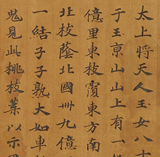 太上將天人玉女八十
于王京山山上有一
億里東枝廕東方南
北枝蔭北國卅九億
一結子子大如車
鬼見此桃枝葉以示